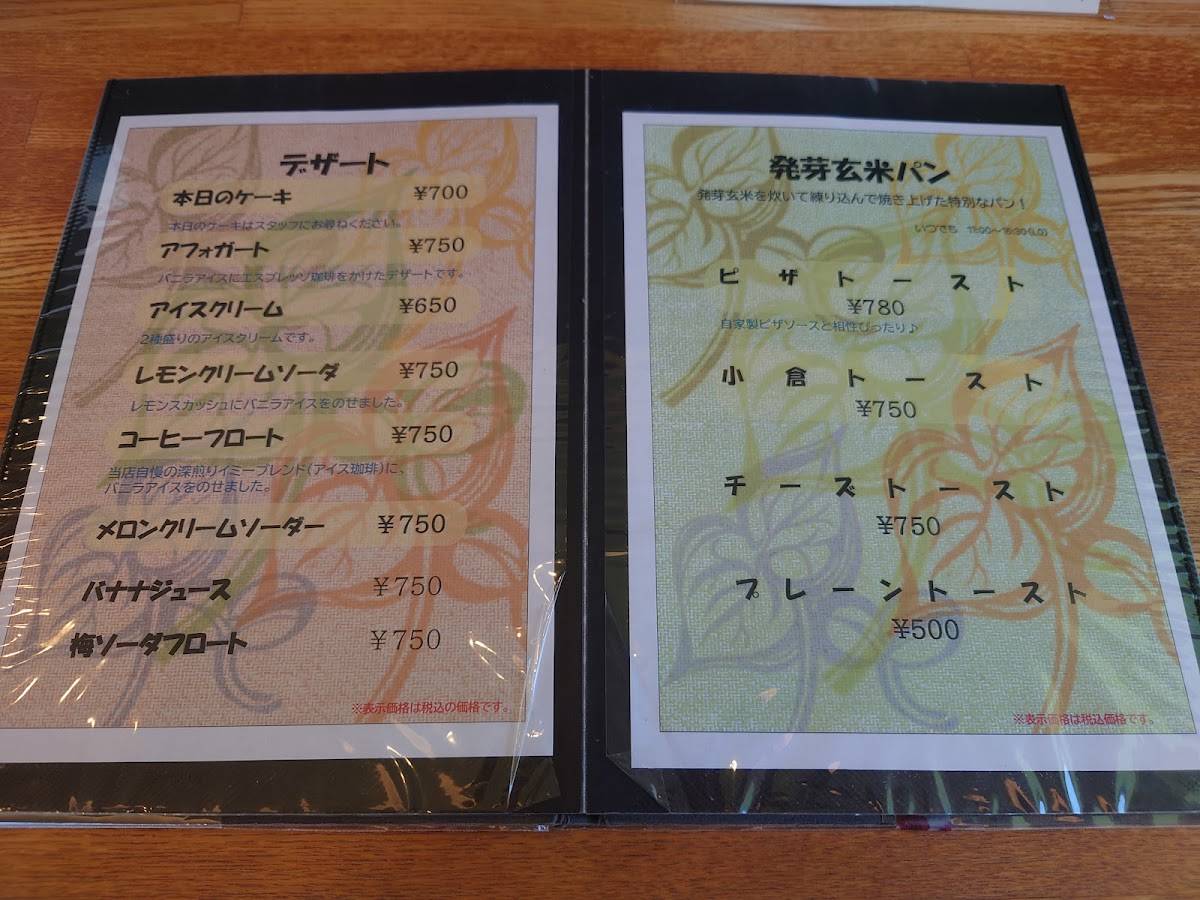 デザート
本日のケーキ ¥700
本日のケーキはスタッフにお尋ねください。
アフォガート ¥750
バニラアイスにエスプレッソ珈琲をかけたデザートです。
アイスクリーム ¥650
2種盛りのアイスクリームです。
レモンクリームソーダ ¥750
レモンスカッシュにバニラアイスをのせました。
コーヒーフロート ¥750
当店自慢の深煎りイミーブレンド(アイス珈琲)に、
バニラアイスをのせました。
メロンクリームソーダー ¥750
バナナジュース ¥750
梅ソーダフロート ¥750
※表示価格は税込の価格です。
発芽玄米パン
発芽玄米を炊いて練り込んで焼き上げた特別なパン!
いつでも 11:00~16:30(LO)
ピザトースト
¥780
自家製ピザソースと相性ぴったり♪
小倉トースト
¥750
チーズトースト
¥750
プレーントースト
¥500
※表示価格は税込価格です。